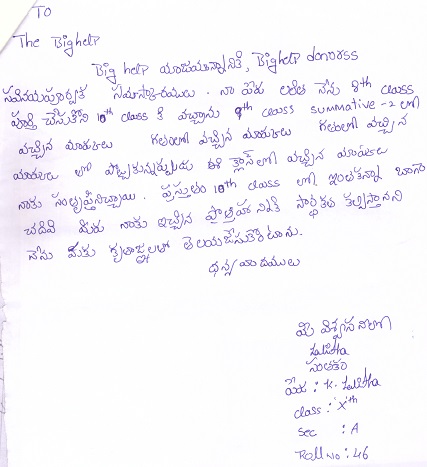 TO
The Bighelp
Big help యాజమాన్యానికి, Bighelp donorss
సవినయపూర్వక నమస్కారములు. నా పేరు లలిత నేను 8th class
పూర్తి చేసుకొని 10th class కి వచ్చాను 9th class summative-2 లో
వచ్చిన మార్కులు గతంలో వచ్చిన మార్కులు గతంలో వచ్చిన
మార్కుల లో పోల్చుకున్నప్పుడు ఈ క్లాస్ లో వచ్చిన మార్కులు
నాకు సంతృప్తినిచ్చాయి. ప్రస్తుతం 10th class లో ఇంతకన్నా బాగా
చదివి మీరు నాకు ఇచ్చిన ప్రోత్సాహానికి సార్థకత కల్పిస్తానని
నేను మీకు కృతజ్ఞతలతో తెలియజేసుకొంటూను.
ధన్యవాదములు
మీ విశ్వసనీయ
Lalitha
సంతకం
పేరు : K. Lalitha
class : Xth
sec : A
Roll No : 46